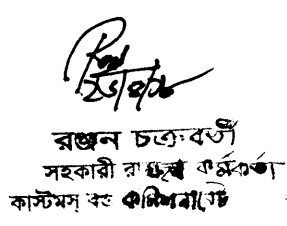 রঞ্জন চক্রবর্তী
সহকারী রাজস্ব কর্মকর্তা
কাস্টমস্ বন্ড কমিশনারেট